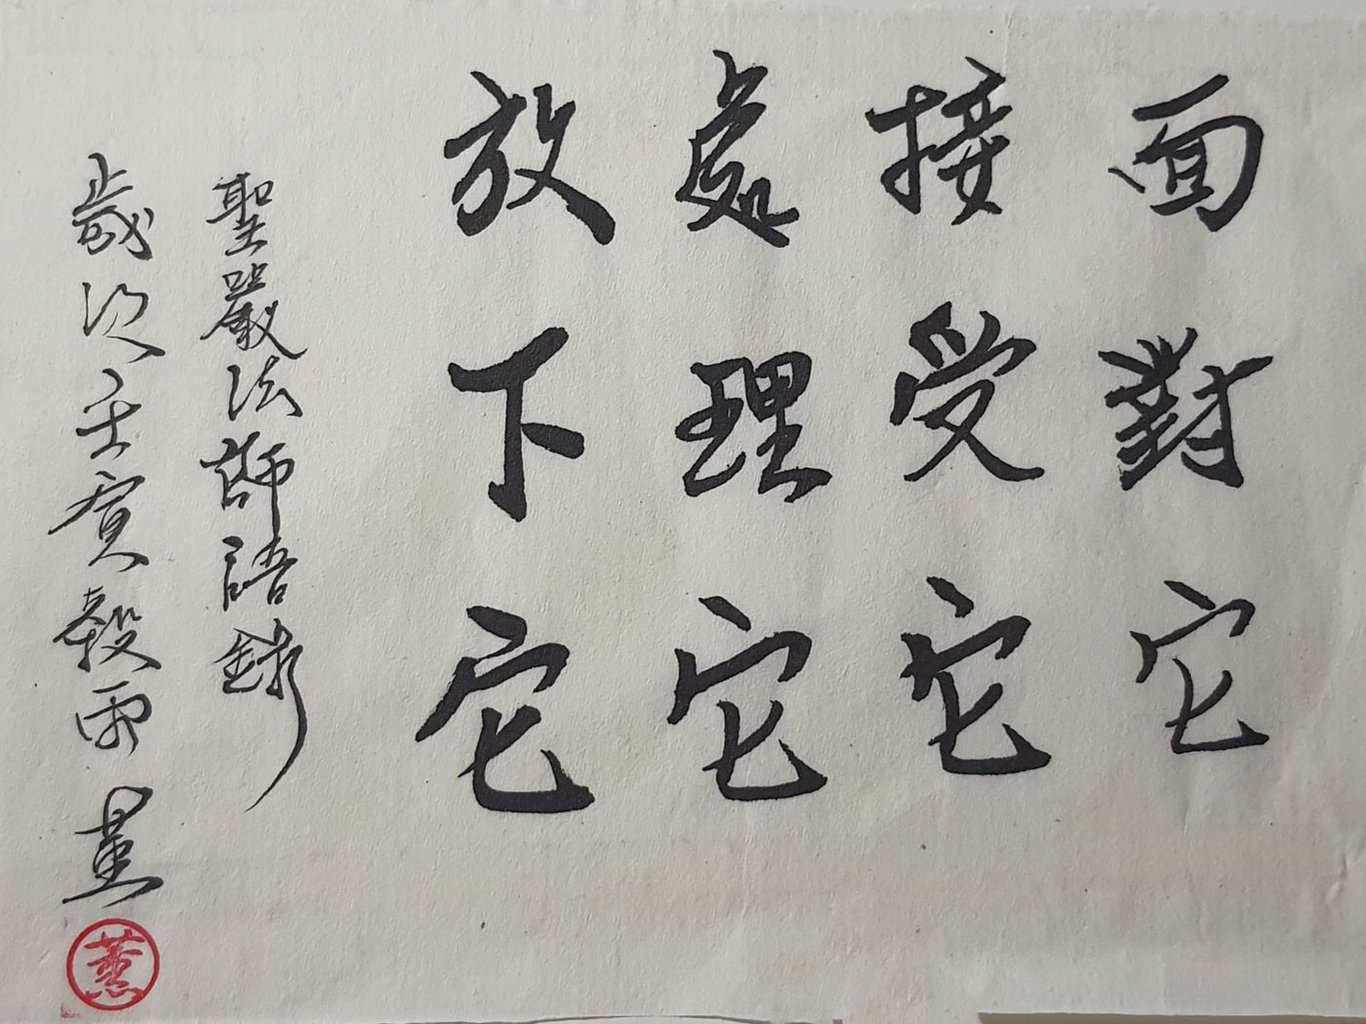 面對它
接受它
處理它
放下它
聖嚴法師語錄
歲次壬寅穀雨 薰
薰